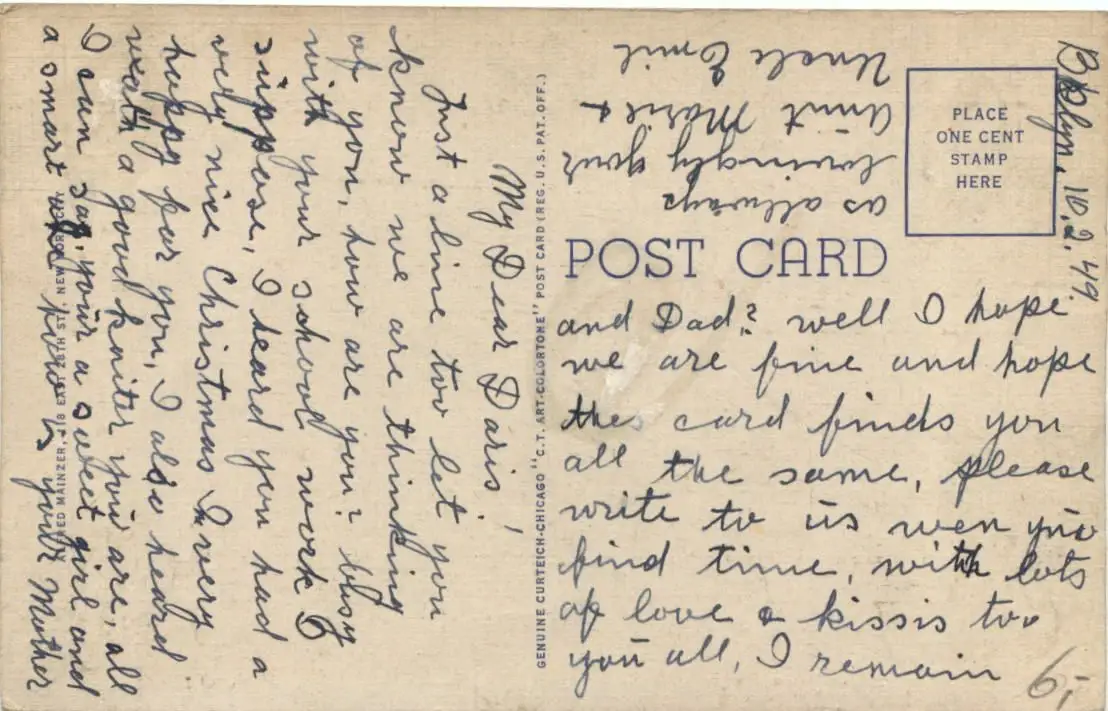 Bklyn, 10, 2, 49.
My Dear Daris!
Just a line too let you
know we are thinking
of you, how are you? busy
with your school work I
suppose, I heard you had a
very nice Christmas I very
happy for you, I also heard
wath a good kaiter you are, all
I can say, your a sweet girl and
a smart one how is your Mother
and Dad? well I hope
we are fine and hope
thes card finds you
all the same, please
write to us wen you
find time, with lots
of love & kissis too
you all, I remain
as allways
lovingly your
aunt Marie &
Uncle Emil
POST CARD
PLACE
ONE CENT
STAMP
HERE
GENUINE CURTEICH-CHICAGO "C.T. ART-COLORTONE" POST CARD (REG. U.S. PAT. OFF.)
MAINZER, 118 EAST 28TH ST., NEW YORK CITY
6,-